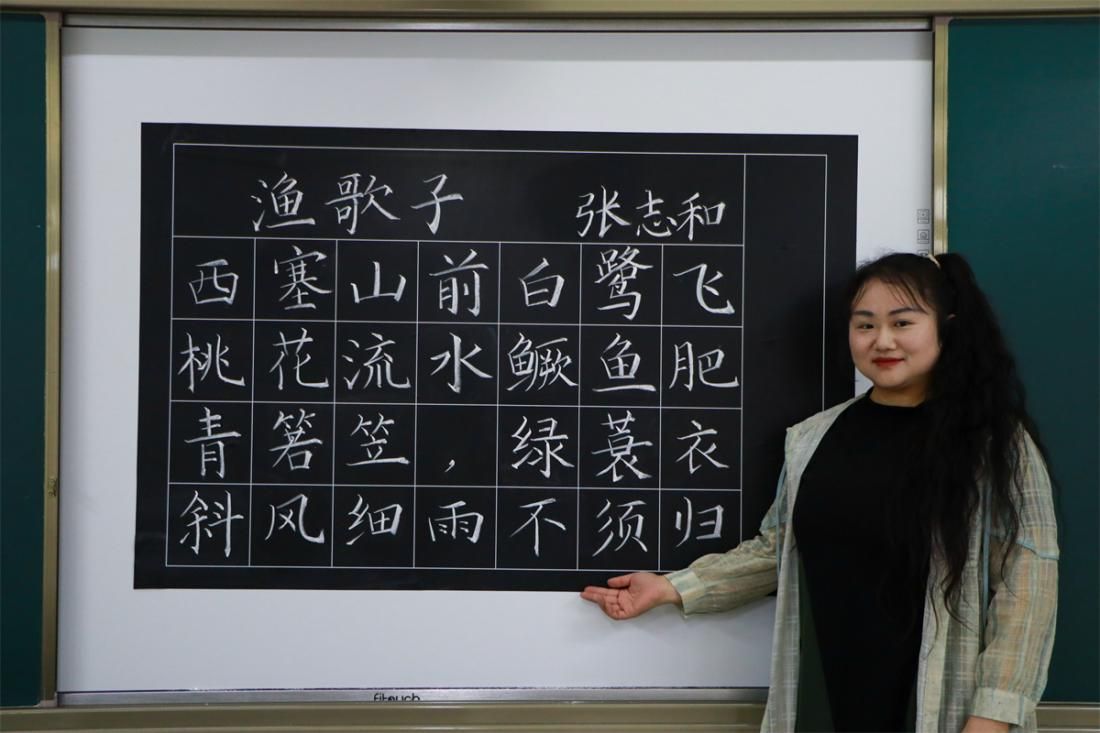 渔歌子 张志和
西塞山前白鹭飞
桃花流水鳜鱼肥
青箬笠，绿蓑衣
斜风细雨不须归
fitouch